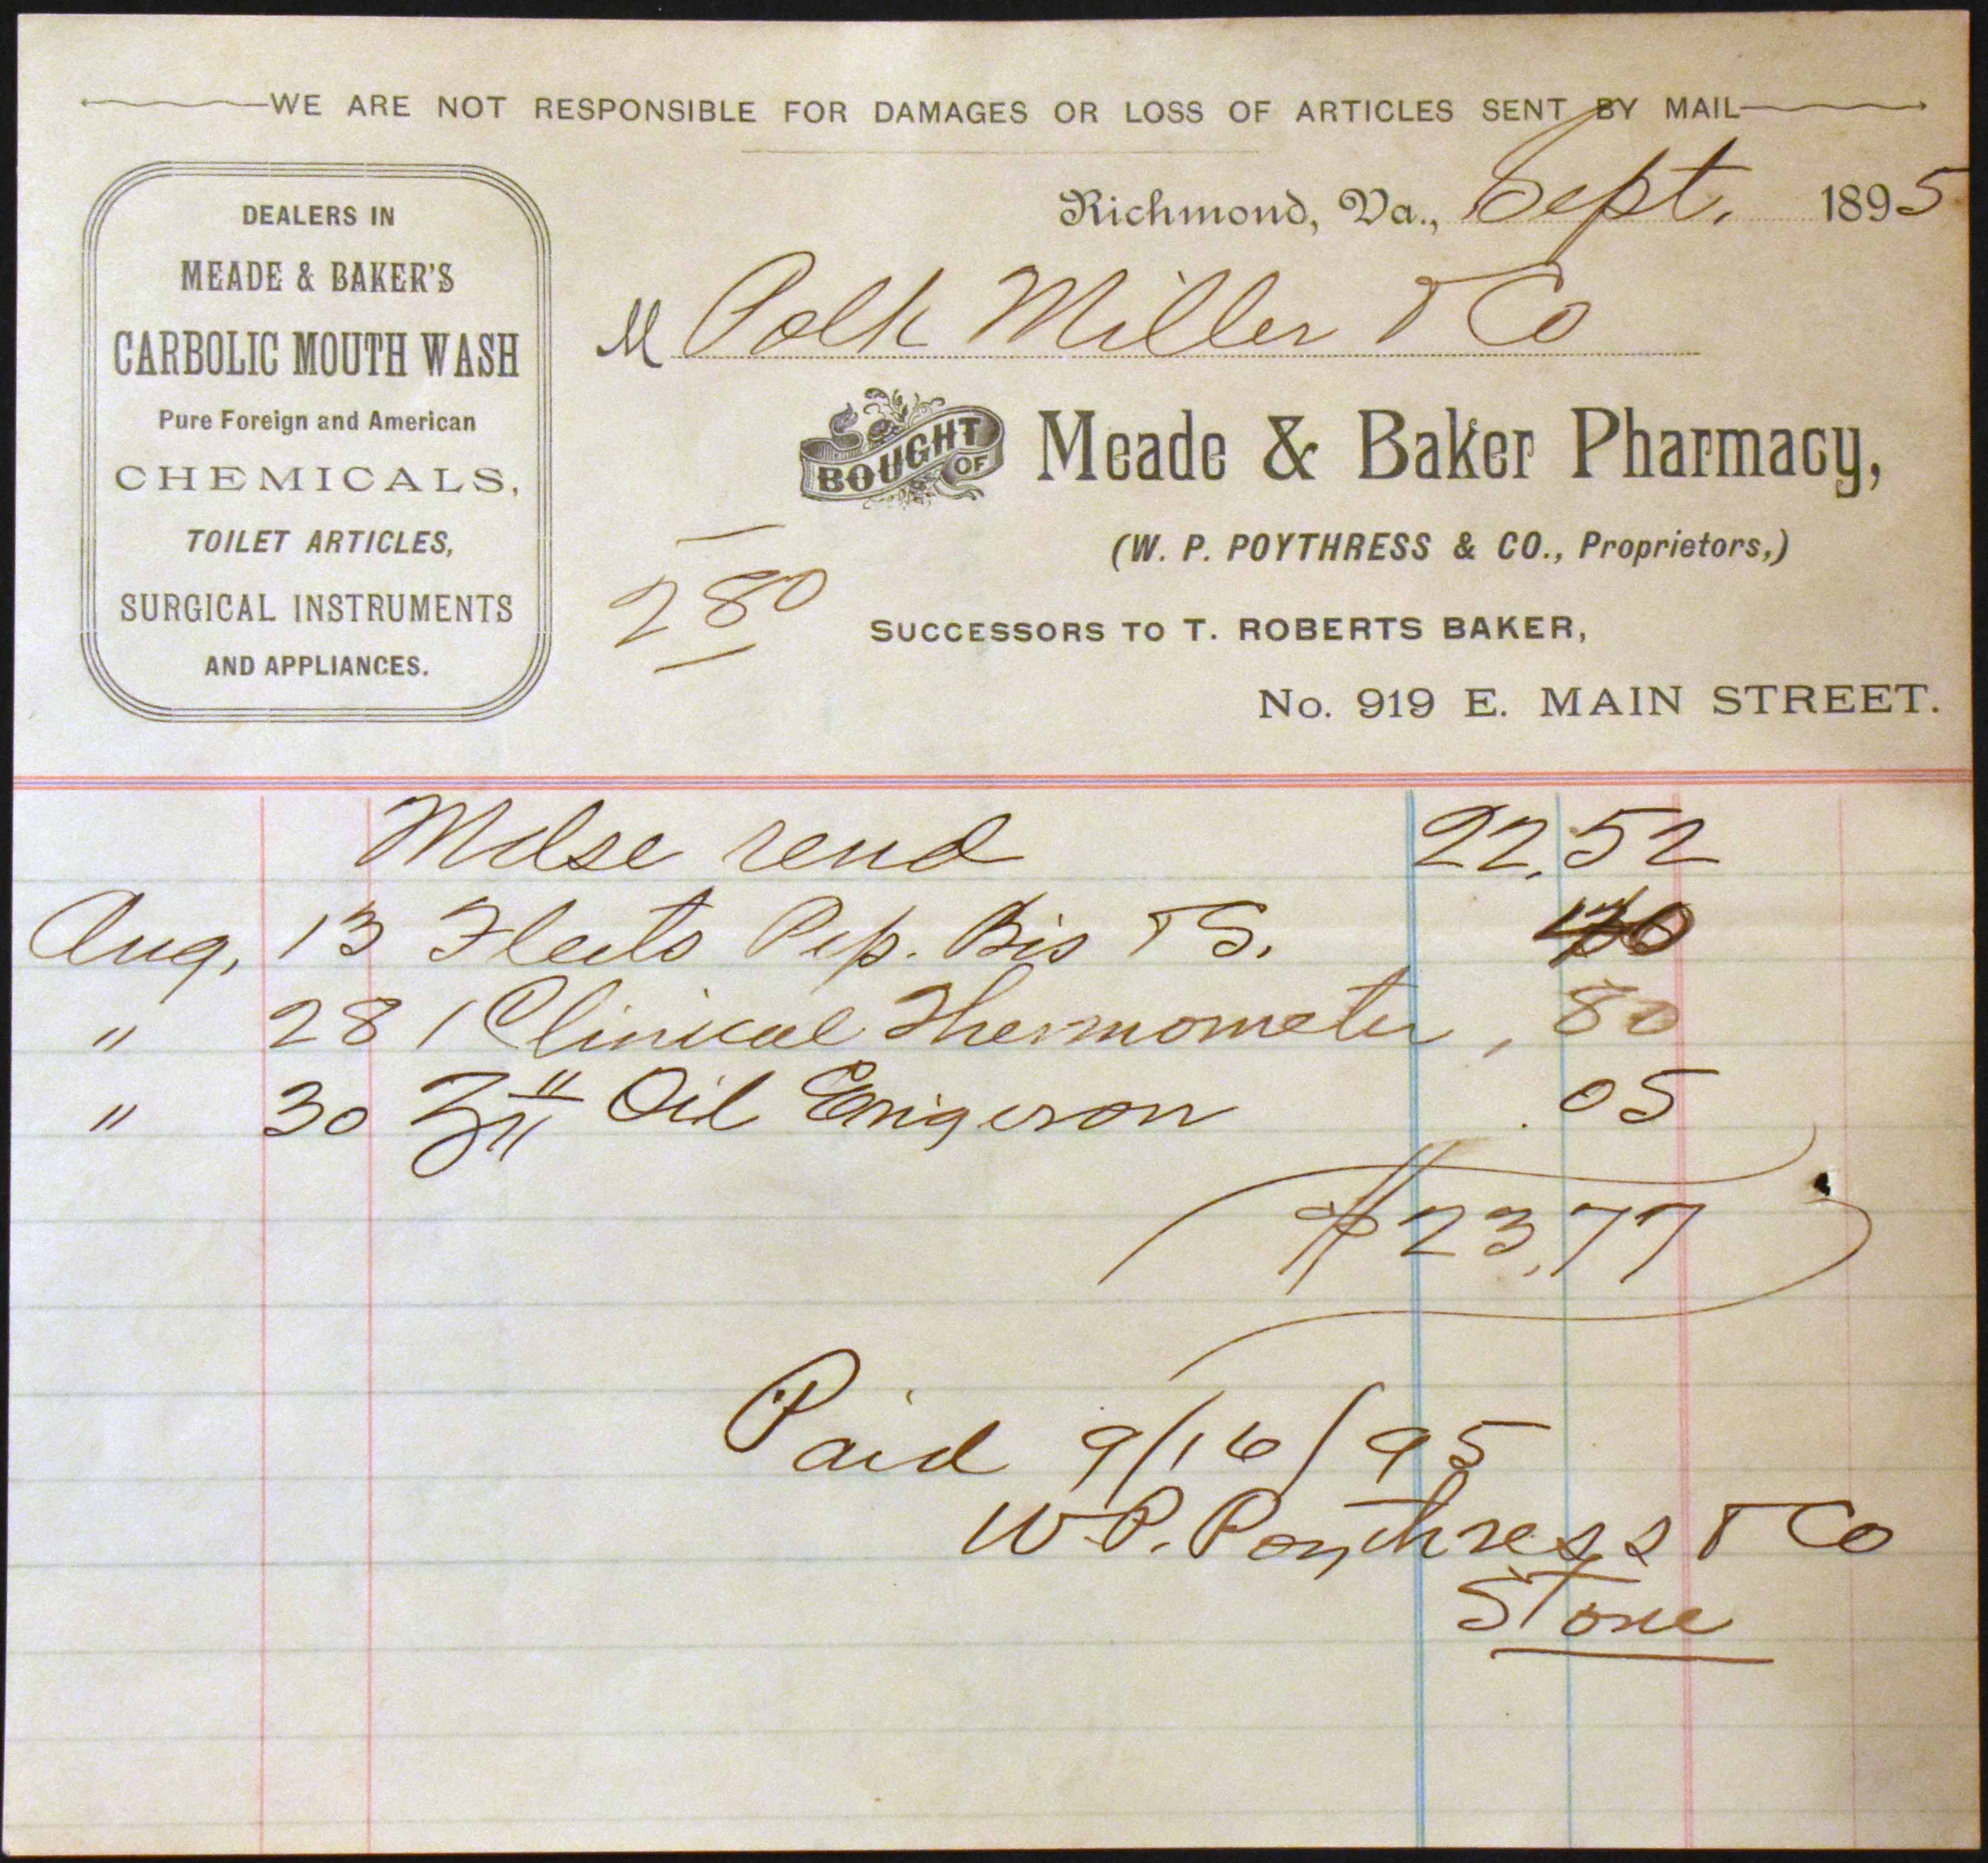 WE ARE NOT RESPONSIBLE FOR DAMAGES OR LOSS OF ARTICLES SENT BY MAIL
Richmond, Va., Sept. 1895
M Polk Miller & Co
DEALERS IN
MEADE & BAKER'S
CARBOLIC MOUTH WASH
Pure Foreign and American
CHEMICALS,
TOILET ARTICLES,
SURGICAL INSTRUMENTS
AND APPLIANCES.
BOUGHT OF Meade & Baker Pharmacy,
(W. P. POYTHRESS & CO., Proprietors,)
2 80
SUCCESSORS TO T. ROBERTS BAKER,
No. 919 E. MAIN STREET.
Mdse rend 22.52
Aug. 13 Fleets Pep. Bis & S.
" 28 1 Clinical Thermometer , 80
" 30 ʒii Oil Erigeron . 05
$23.77
Paid 9/16/95
W. P. Poythress & Co
Stone